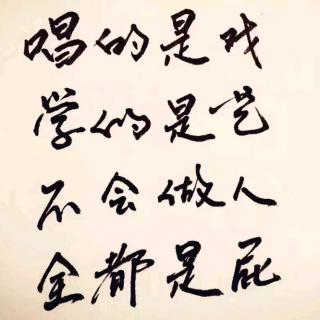 唱的是戏
学的是艺
不会做人
全都是屁